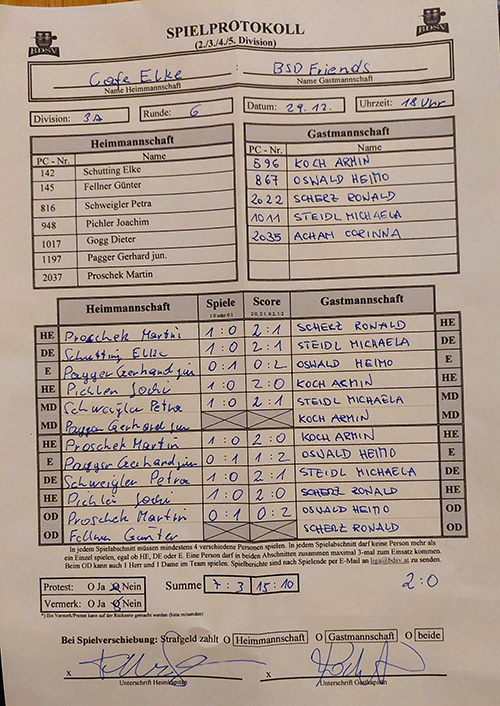 SPIELPROTOKOLL
(2./3./4./5. Division)
BDSV BDSV
Cafe Elke : BSD Friends
Name Heimmannschaft Name Gastmannschaft
Division: 3A Runde: 6 Datum: 29.12. Uhrzeit: 18 Uhr
Heimmannschaft Gastmannschaft
PC - Nr. Name PC - Nr. Name
142 Schutting Elke 596 KOCH ARMIN
145 Fellner Günter 867 OSWALD HEIMO
816 Schweigler Petra 2022 SCHERZ RONALD
948 Pichler Joachim 1011 STEIDL MICHAELA
1017 Gogg Dieter 2035 ACHAM CORINNA
1197 Pagger Gerhard jun.
2037 Proschek Martin
Heimmannschaft Spiele Score Gastmannschaft
1:0 oder 0:1 2:0, 2:1, 0:2, 1:2
HE Proschek Martin 1:0 2:1 SCHERZ RONALD HE
DE Schutting Elke 1:0 2:1 STEIDL MICHAELA DE
E Pagger Gerhard jun 0:1 0:2 OSWALD HEIMO E
HE Pichler Jochi 1:0 2:0 KOCH ARMIN HE
MD Schweigler Petra 1:0 2:1 STEIDL MICHAELA MD
MD Pagger Gerhard jun. KOCH ARMIN MD
HE Proschek Martin 1:0 2:0 KOCH ARMIN HE
E Pagger Gerhard jun 0:1 1:2 OSWALD HEIMO E
DE Schweigler Petra 1:0 2:1 STEIDL MICHAELA DE
HE Pichler Jochi 1:0 2:0 SCHERZ RONALD HE
OD Proschek Martin 0:1 0:2 OSWALD HEIMO OD
OD Fellner Günter SCHERZ RONALD OD
In jedem Spielabschnitt müssen mindestens 4 verschiedene Personen spielen. In jedem Spielabschnitt darf keine Person mehr als
ein Einzel spielen, egal ob HE, DE oder E. Eine Person darf in beiden Abschnitten zusammen maximal 3-mal zum Einsatz kommen.
Beim OD kann auch 1 Herr und 1 Dame im Team spielen. Spielberichte sind nach Spielende per E-Mail an liga@bdsv.at zu senden.
Protest: O Ja O Nein Summe 7:3 15:10 2:0
Vermerk: O Ja O Nein
*) Ein Vermerk/Protest kann auf der Rückseite gemacht werden (bitte ankreuzen)
Bei Spielverschiebung: Strafgeld zahlt O Heimmannschaft O Gastmannschaft O beide
x x
Unterschrift Heimkapitän Unterschrift Gastkapitän